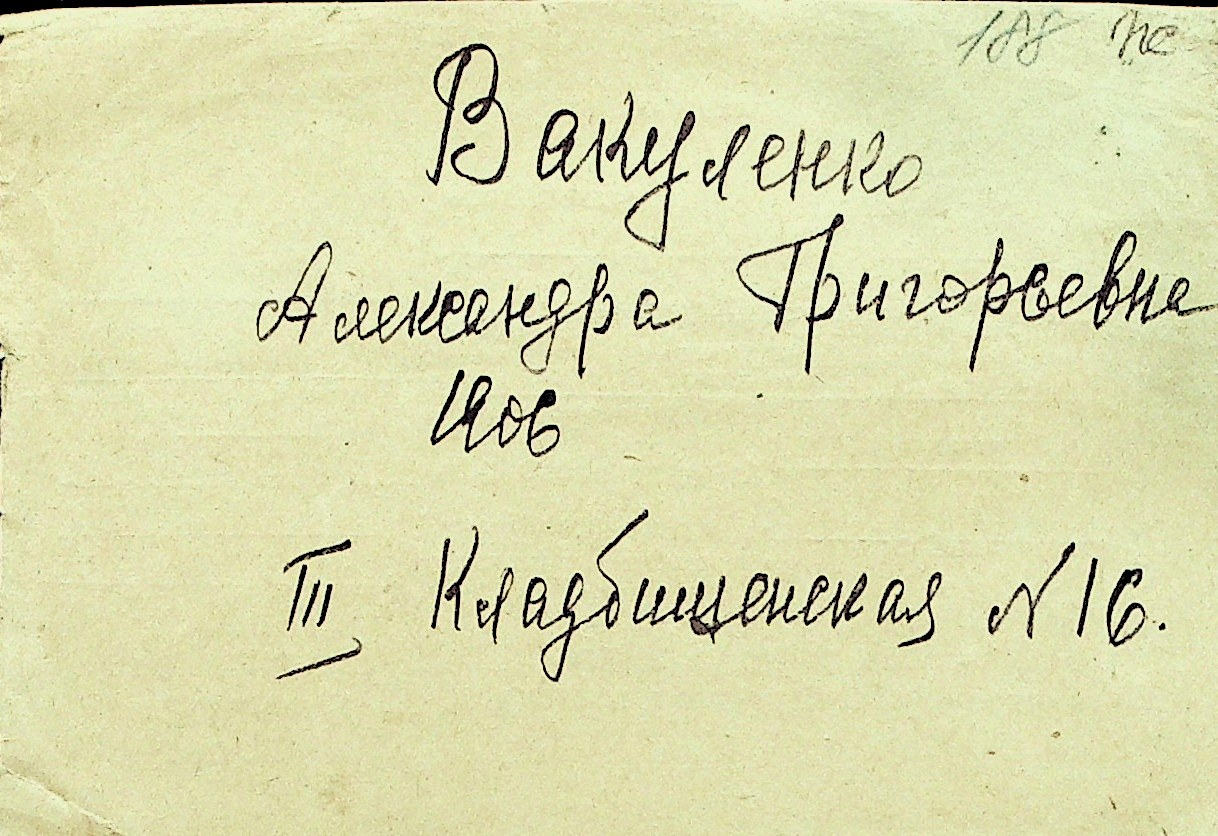 188
Вакуленко
Александра Григорьевна
1906
III Кладбищенская N 16.